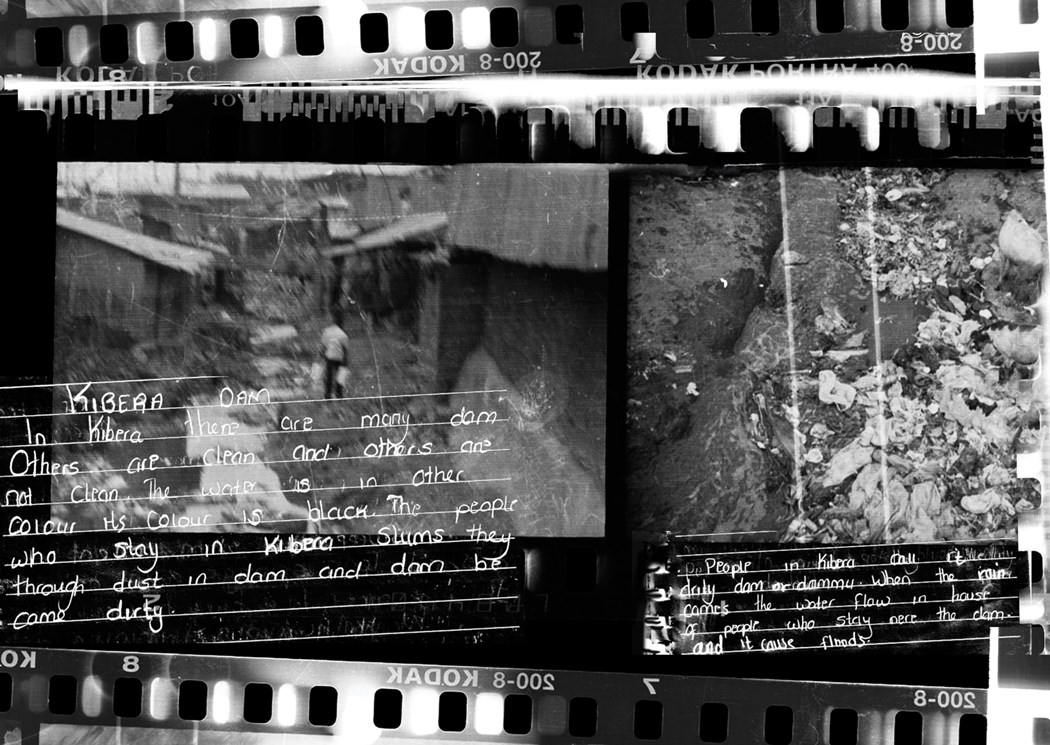 200-8 KODAK
7
200-8
KODAK
KODAK PORTRA 400
KIBERA DAM
In Kibera there are many dam
Others are clean and others are
not clean. The water is in other
colour its colour is black. The people
who stay in KIBERA Slums they
through dust in dam and dam be
came dirty.
People in Kibera call it
dirty dam or dammu. When the rain
comes the water flaw in house
of people who stay nere the dam.
and it cause floods
KO
8
KODAK 200-8
7
200-8